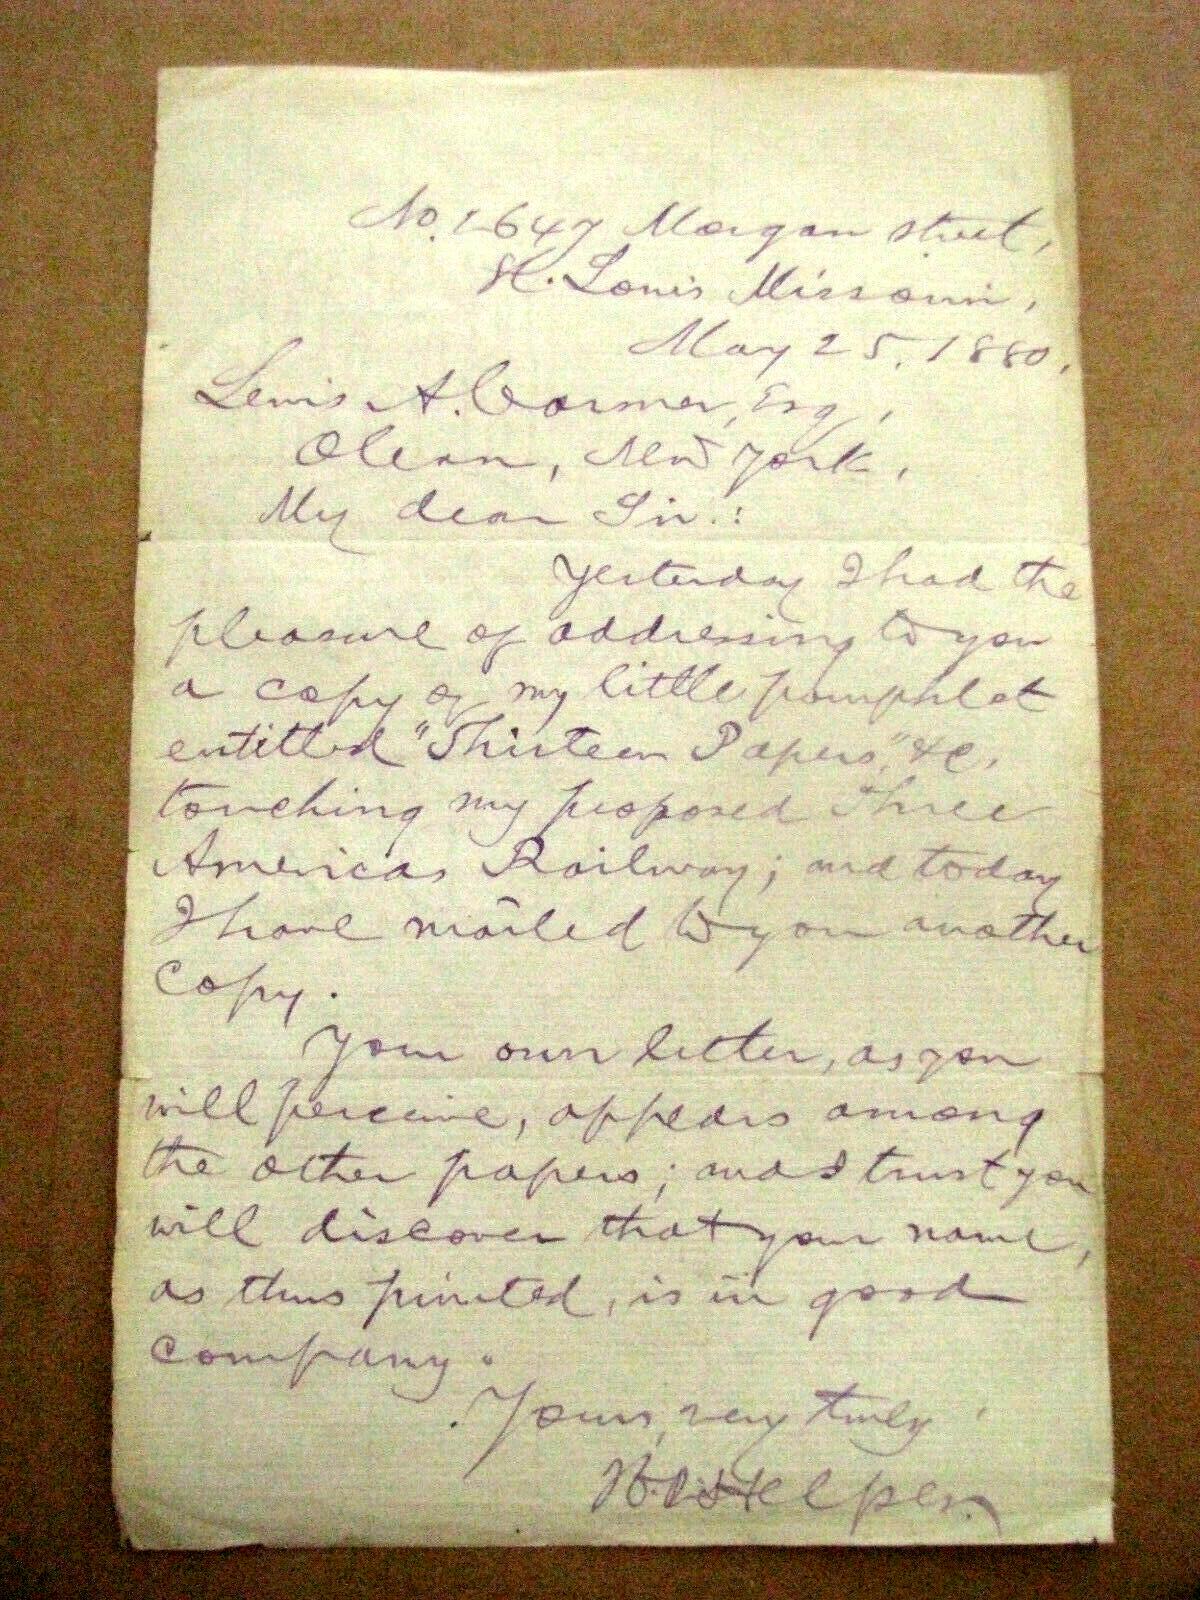 No. 2647 Morgan street,
St. Louis Missouri,
May 25, 1880.
Lewis A. Cormer, Esq,
Olean, New York,
My dear Sir:
Yesterday I had the
pleasure of addressing to you
a copy of my little pamphlet
entitled "Thirteen Papers," &c.
touching my proposed Three
Americas Railway; and today
I have mailed to you another
copy.
Your own letter, as you
will perceive, appears among
the other papers; and I trust you
will discover that your name,
as thus printed, is in good
company.
Yours, very truly,
Helper.